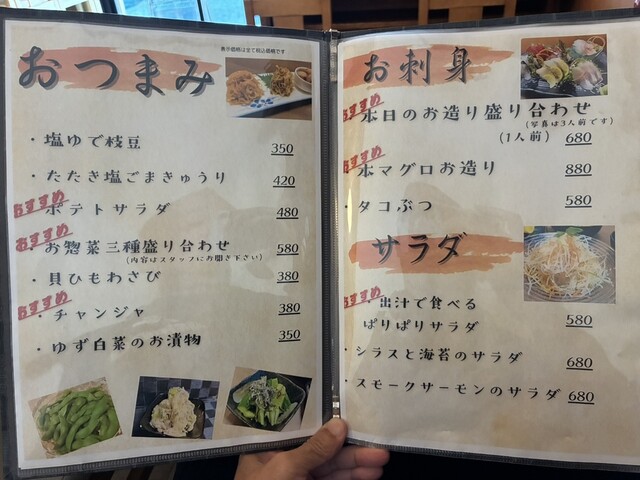 表示価格は全て税込価格です
おつまみ
・塩ゆで枝豆 350
・たたき塩ごまきゅうり 420
おすすめ
・ポテトサラダ 480
おすすめ
・お惣菜三種盛り合わせ 580
(内容はスタッフにお聞き下さい)
・貝ひもわさび 380
おすすめ
・チャンジャ 380
・ゆず白菜のお漬物 350
お刺身
おすすめ
本日のお造り盛り合わせ
(写真は3人前です)
(1人前) 680
おすすめ
本マグロお造り 880
・タコぶつ 580
サラダ
おすすめ
・出汁で食べる
ぱりぱりサラダ 580
・シラスと海苔のサラダ 680
・スモークサーモンのサラダ 680